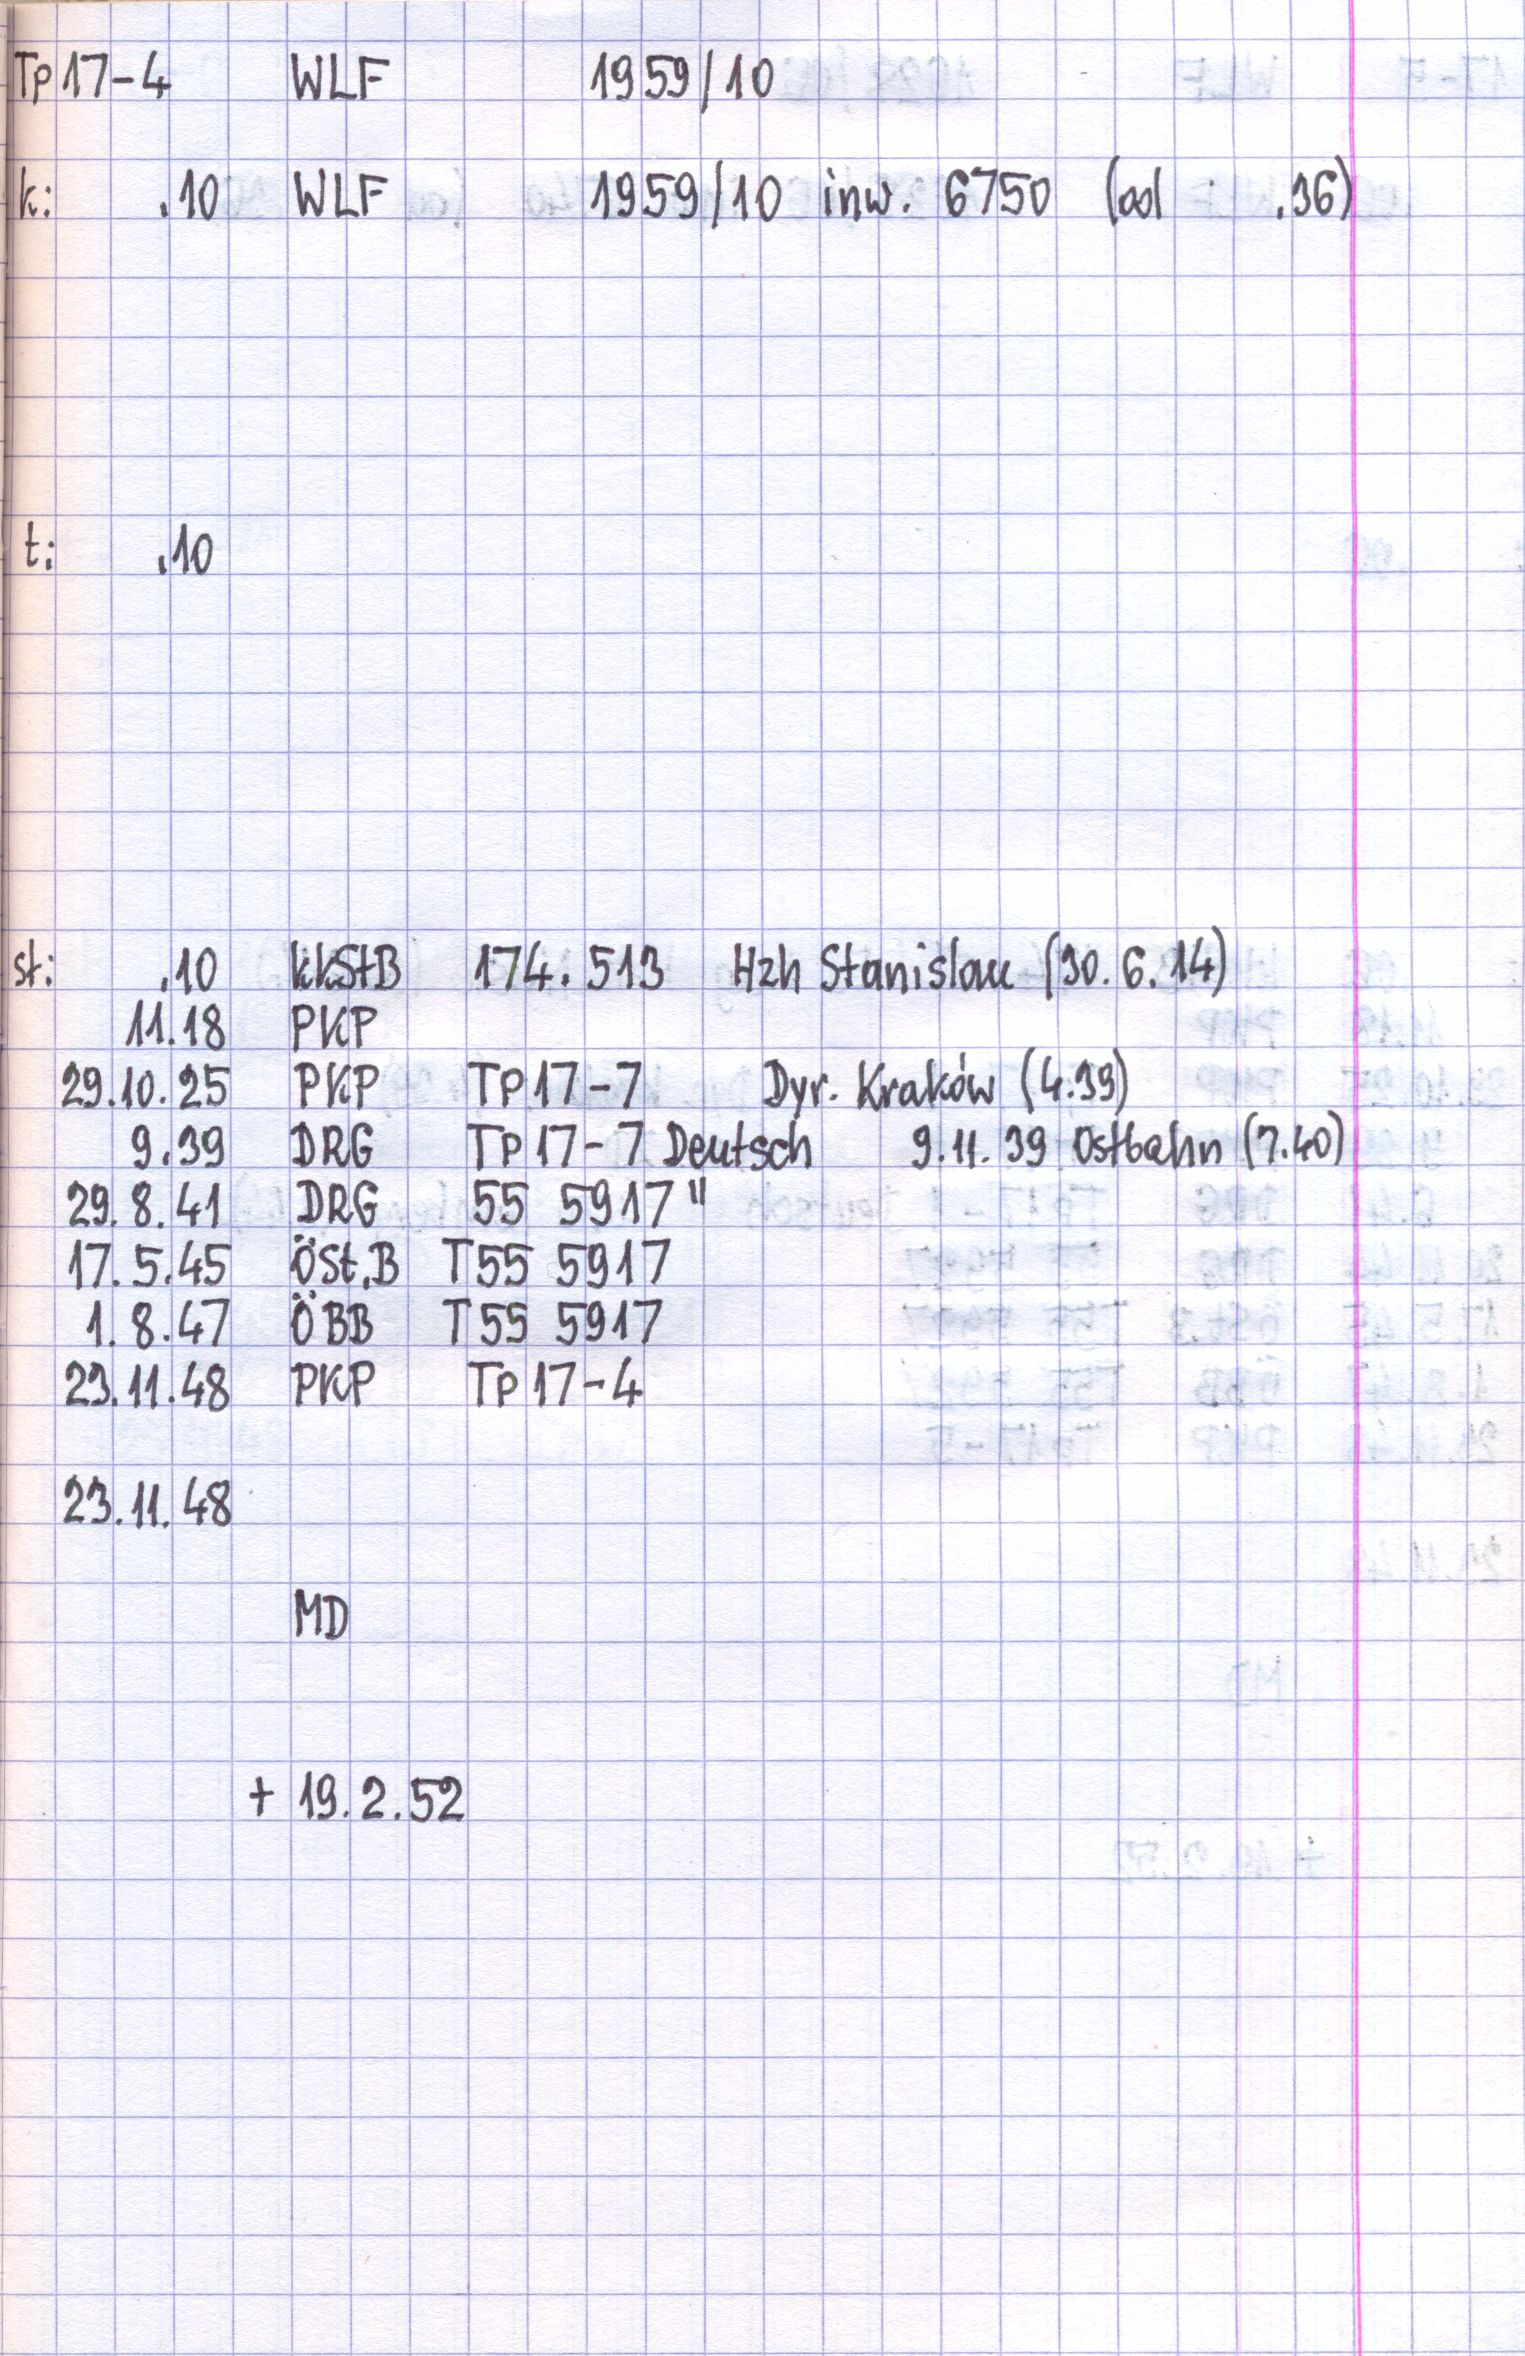 Tp 17-4 WLF 1959/10
k: .10 WLF 1959/10 inw. 6750 (od .36)
t: .10
st: .10 kkStB 174.513 Hzh Stanislau (30.6.14)
11.18 PKP
29.10.25 PKP Tp 17-7 Dyr. Kraków (4.39)
9.39 DRG Tp 17-7 Deutsch 9.11.39 Ostbahn (7.40)
29.8.41 DRG 55 5917"
17.5.45 ÖSt.B T 55 5917
1.8.47 ÖBB T 55 5917
23.11.48 PKP Tp 17-4
23.11.48
MD
+ 19.2.52